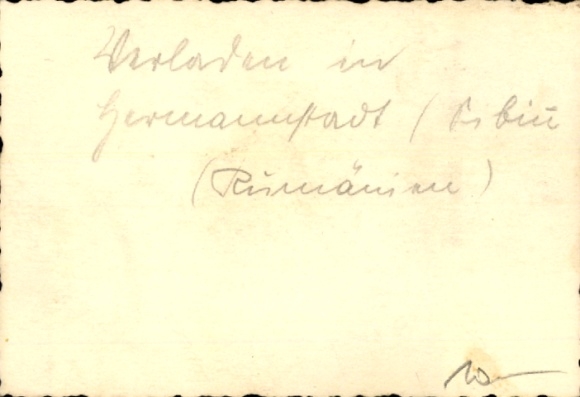 Verladen in
Hermannstadt / Sibiu
(Rumänien)
10.-